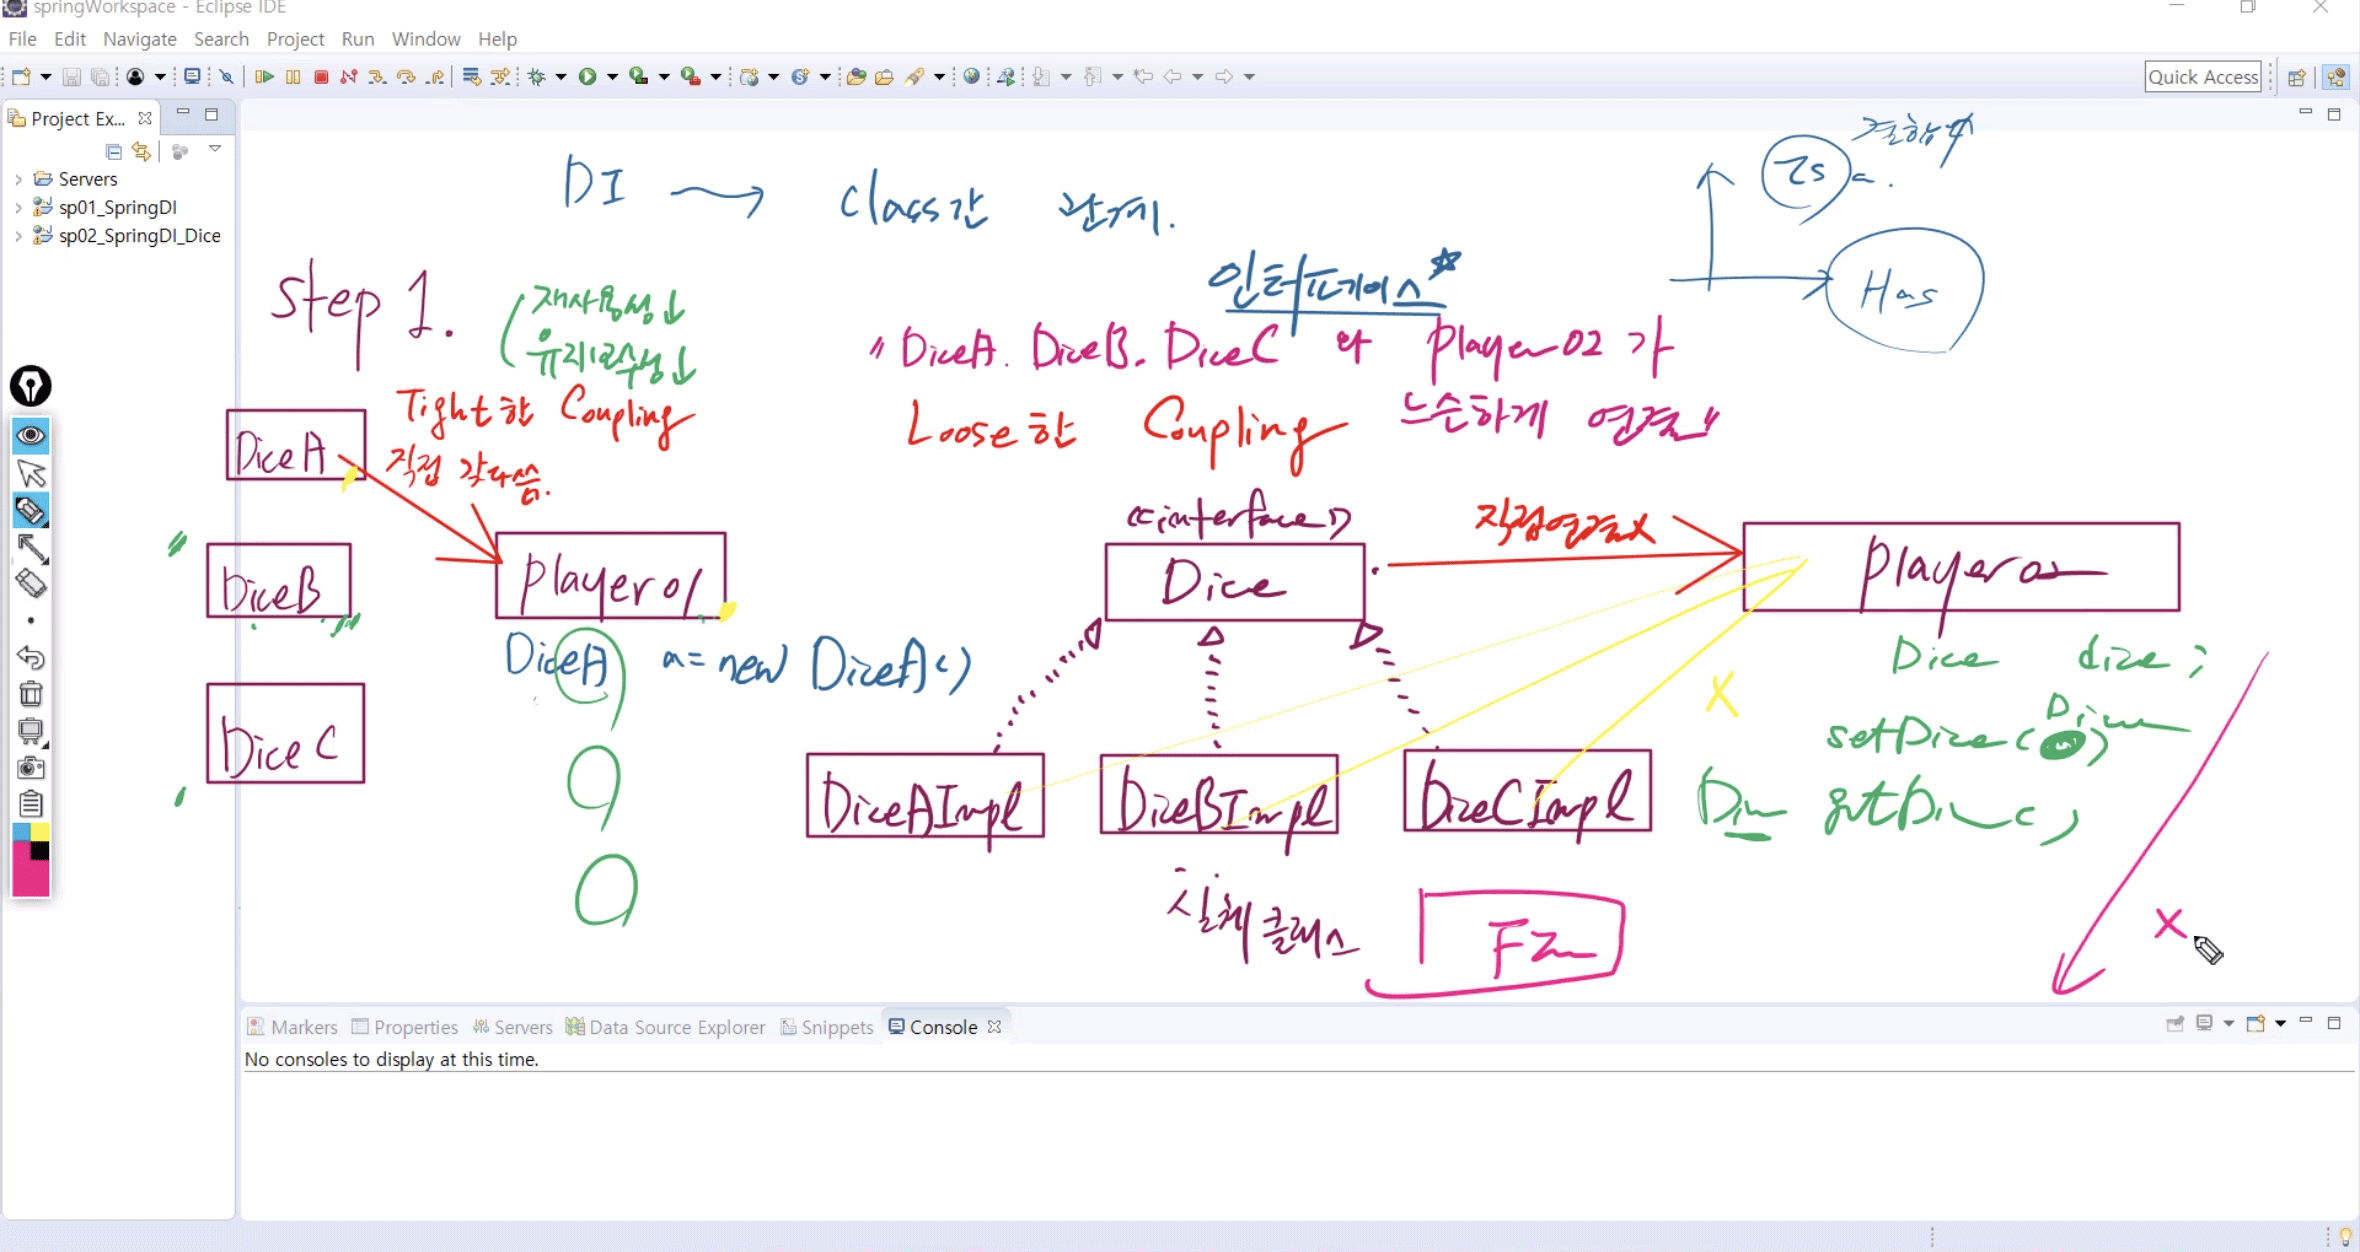 springWorkspace - Eclipse IDE
File Edit Navigate Search Project Run Window Help
Quick Access
Project Ex...
Servers
sp01_SpringDI
sp02_SpringDI_Dice
DI → class간 관계.
결합
Is a.
Has
Step 1.
재사용성↓
유지보수성↓
인터페이스
"DiceA. DiceB. DiceC 와 player02 가
느슨하게 연결"
Tight한 Coupling
직접 갖다씀.
Loose한 Coupling
DiceA
DiceB
Dice C
player01
DiceA a = new DiceA()
<<interface>>
Dice
직접연결x
player02
Dice dice;
setDice( )
Dice
getDice()
DiceAImpl
DiceBImpl
DiceCImpl
실체클래스
X
X
Markers Properties Servers Data Source Explorer Snippets Console
No consoles to display at this time.